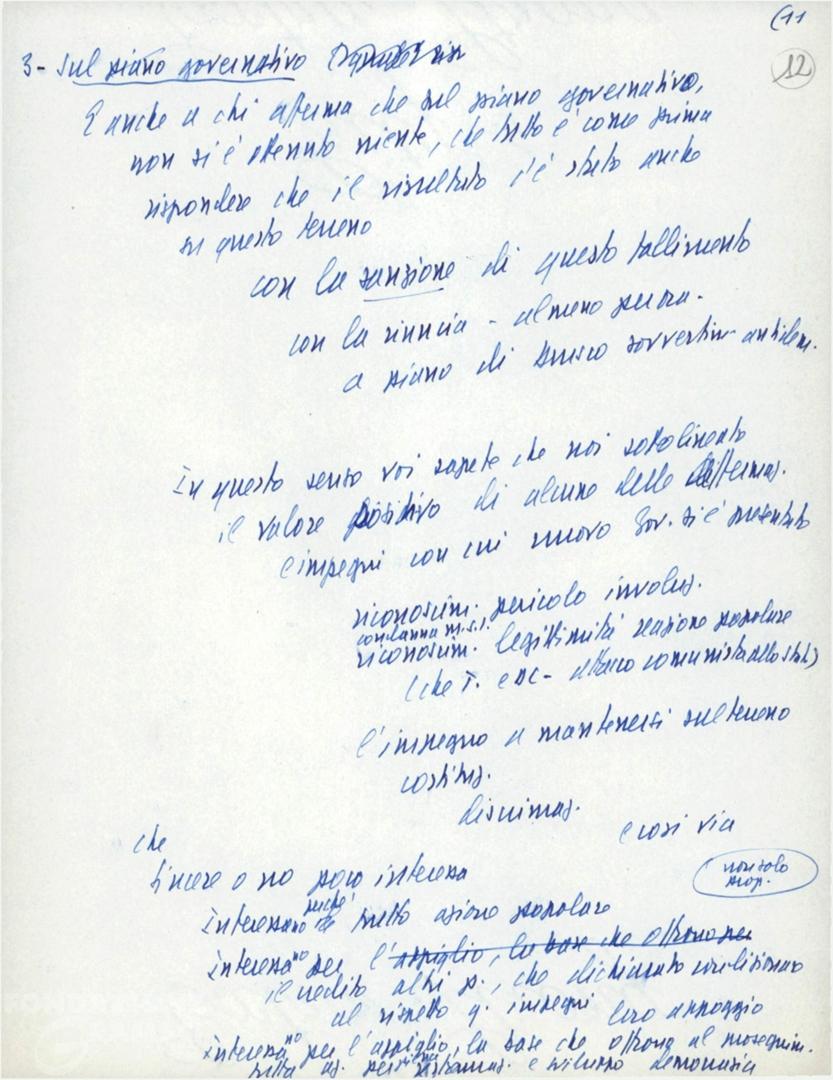 (11
12
3 - Sul piano governativo
E anche a chi afferma che sul piano governativo,
non si è ottenuto niente, che tutto è come prima
rispondere che il risultato c'è stato anche
su questo terreno
con la sanzione di questo fallimento
con la rinncia - almeno per ora -
a piano di sovvertim. antidem.
In questo senso voi sapete che noi sottolineato
il valore positivo di alcune delle affermaz.
e impegni con cui nuovo Gov. si è presentato
riconoscim. pericolo involuz.
condanna m.s.i.
riconoscim. legittimità reazione popolare
(che T. e DC - attacco comunista allo stato)
l'impegno a mantenersi sul terreno
costituz.
discrimaz.
e così via
che
sincere o no poco interessa
non solo
prop.
interessano perché frutto azione popolare
interessano per l'appiglio, la base che offrono per
il credito altri p., che dichiarato condizionano
al rispetto q. impegni loro appoggio
interessano per l'appiglio, la base che offrono al proseguim.
e sviluppo democrazia